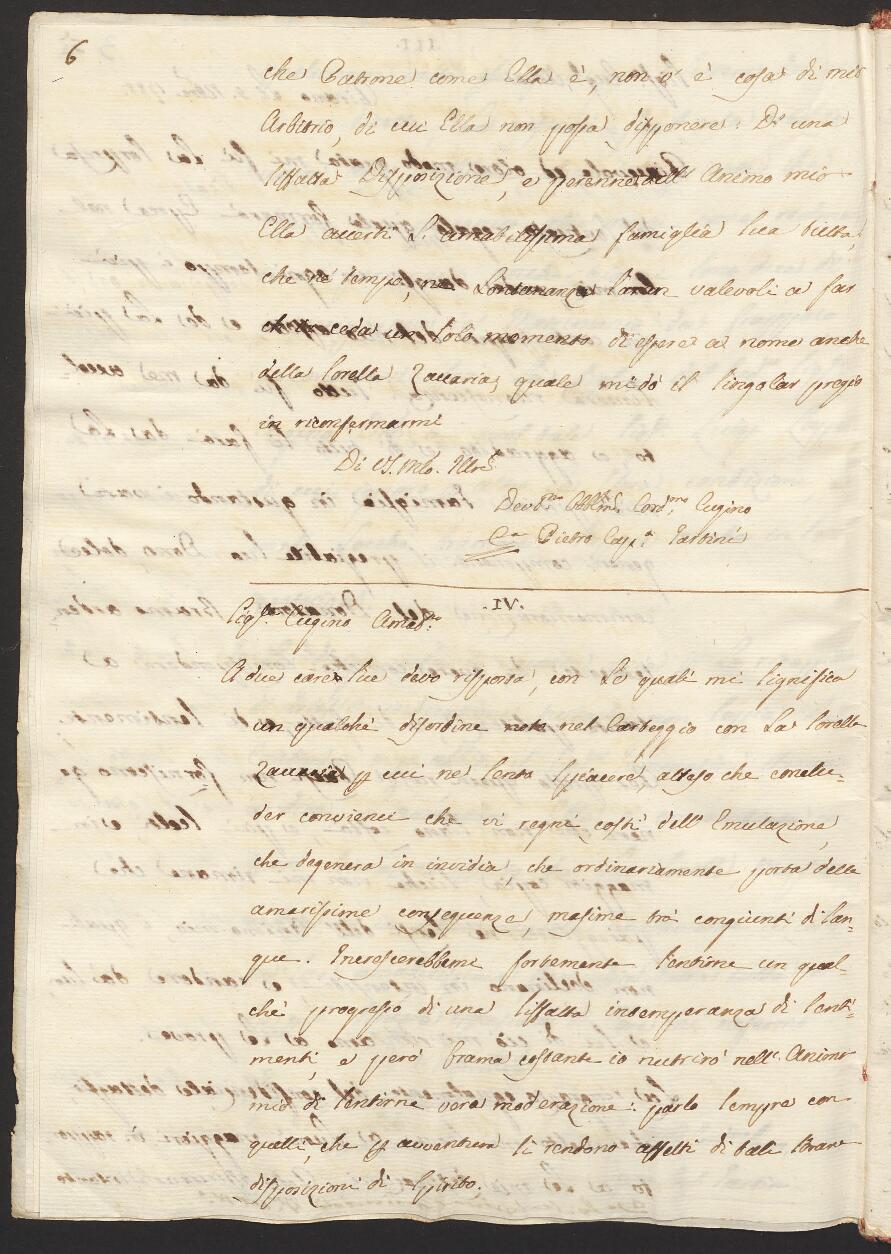 6
che Patrone come Ella è, non v'è cosa di mio
Arbitrio, di cui Ella non possa disponere: Di una
sissatta Disposizione, e perenne dell'Animo mio
Ella accerti L'amabilissima famiglia sua tutta,
che né tempo, ne Lontananza saran valevoli a far
ceda un solo momento di essere a nome anche
della sorella Zaccaria, quale mi dò il singolar pregio
in riconfermarmi
Di V.S. Mto. Illre.
Devo.mo Obblmo. Cord.mo Cugino
Pietro Tartini
VI.
Sigr. Cugino Amd.mo
A due care sue devo risposta, con Le quali mi significa
un qualche disordine nato nel Carteggio con La sorella
Zaccaria p cui ne sento spiacere atteso che conclu-
der conviene che vi regni costi dell'Emulazione,
che degenera in invidia, che ordinariamente porta delle
amarissime conseguenze, masime trà congiunti di san-
gue. Increscerebbemi fortemente sentirne un qual-
che progresso di una sissatta intemperanza di senti-
menti, e però brama costante io nutrirò nell'Animo
mio di sentirne vera moderazione: parlo sempre con
quelli, che p avventura si rendono affetti di tali brave
disposizioni di spirito.